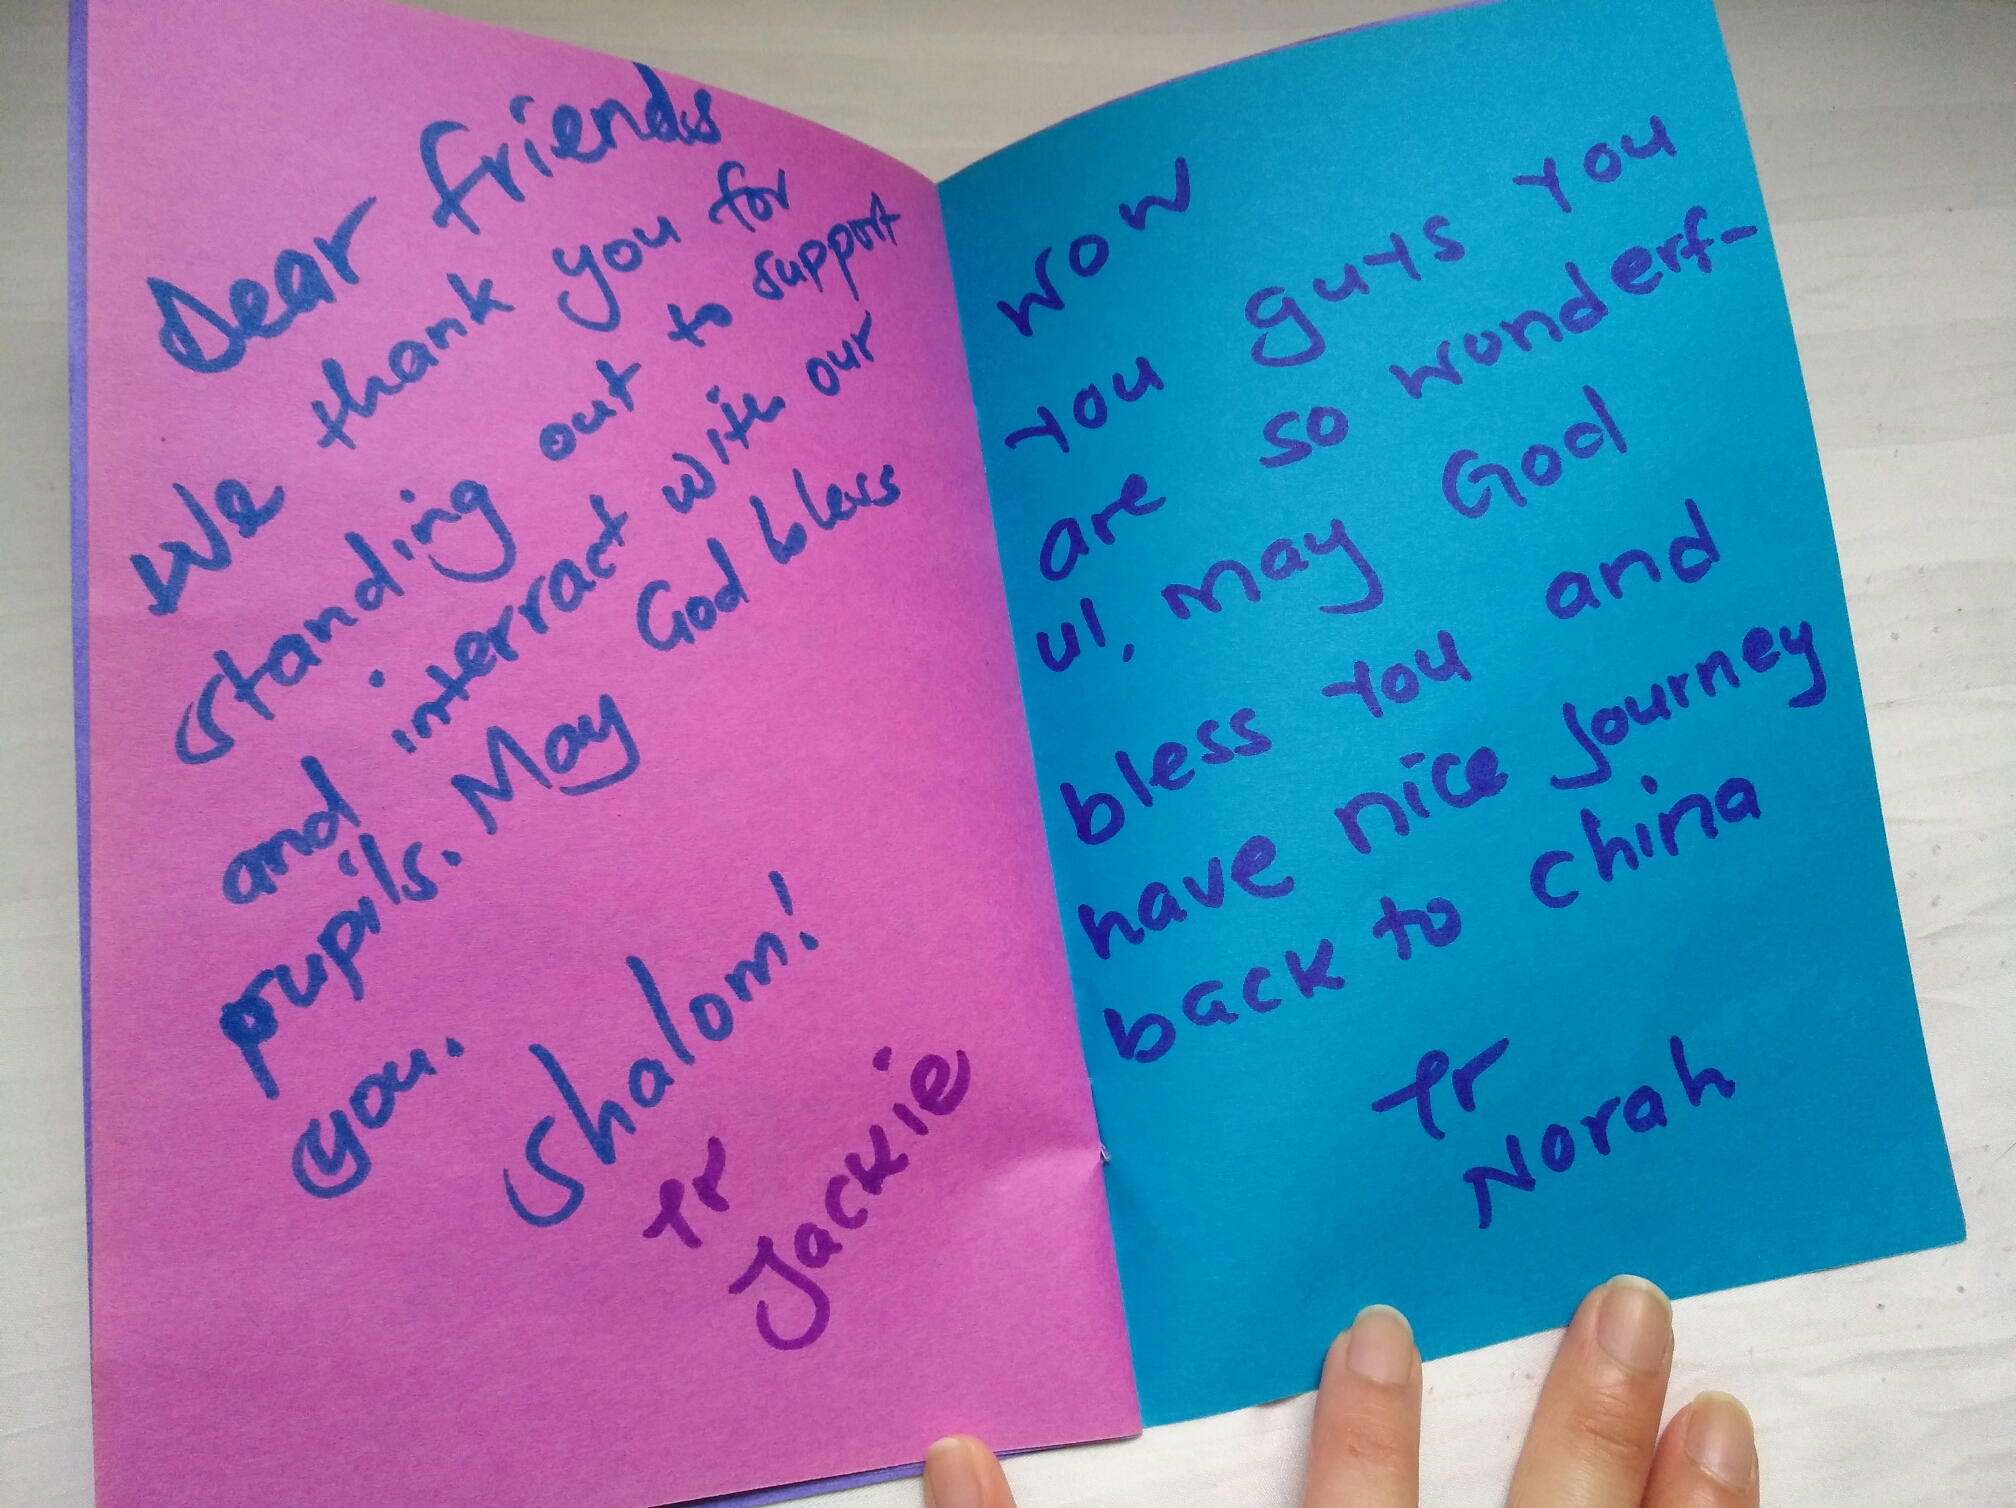 Dear friends
We thank you for
standing out to support
and interract with our
pupils. May God bless
you.
Shalom!
Tr
Jackie
WOW
You guys you
are so wonderf-
ul, may God
bless you and
have nice Journey
back to china
Tr
Norah